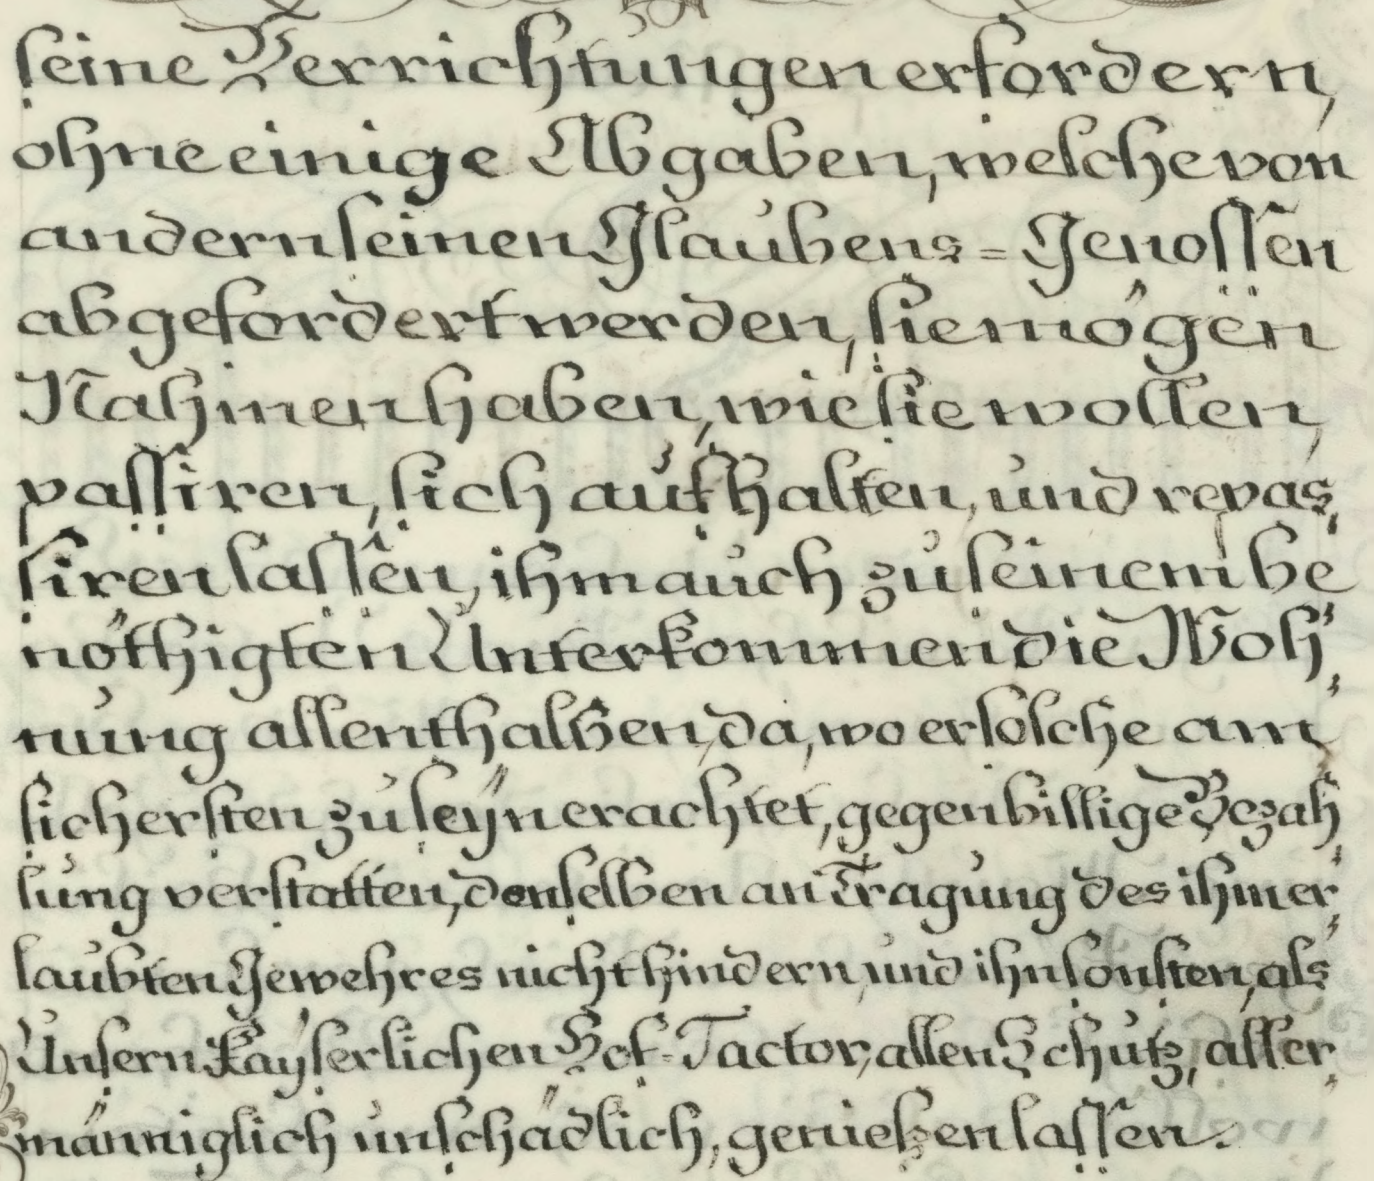 seine Verrichtungen erfordern,
ohne einige Abgaben, welche von
andern seinen Glaubens=Genossen
abgefordert werden, sie mögen
Nahmen haben, wie sie wollen,
passiren, sich aufhalten, und repas,
siren lassen, ihm auch zu seinem be
nöthigten Unterkommen die Woh,
nung allenthalben, da, wo er solche am
sichersten zu seÿn erachtet, gegen billige Bezah,
lung verstatten, denselben an Tragung des ihm er,
laubten Gewehres nicht hindern, und ihn sonsten, als
Unsern Kayserlichen Hof-Factor, allen Schutz, aller,
männiglich unschädlich, genießen lassen.